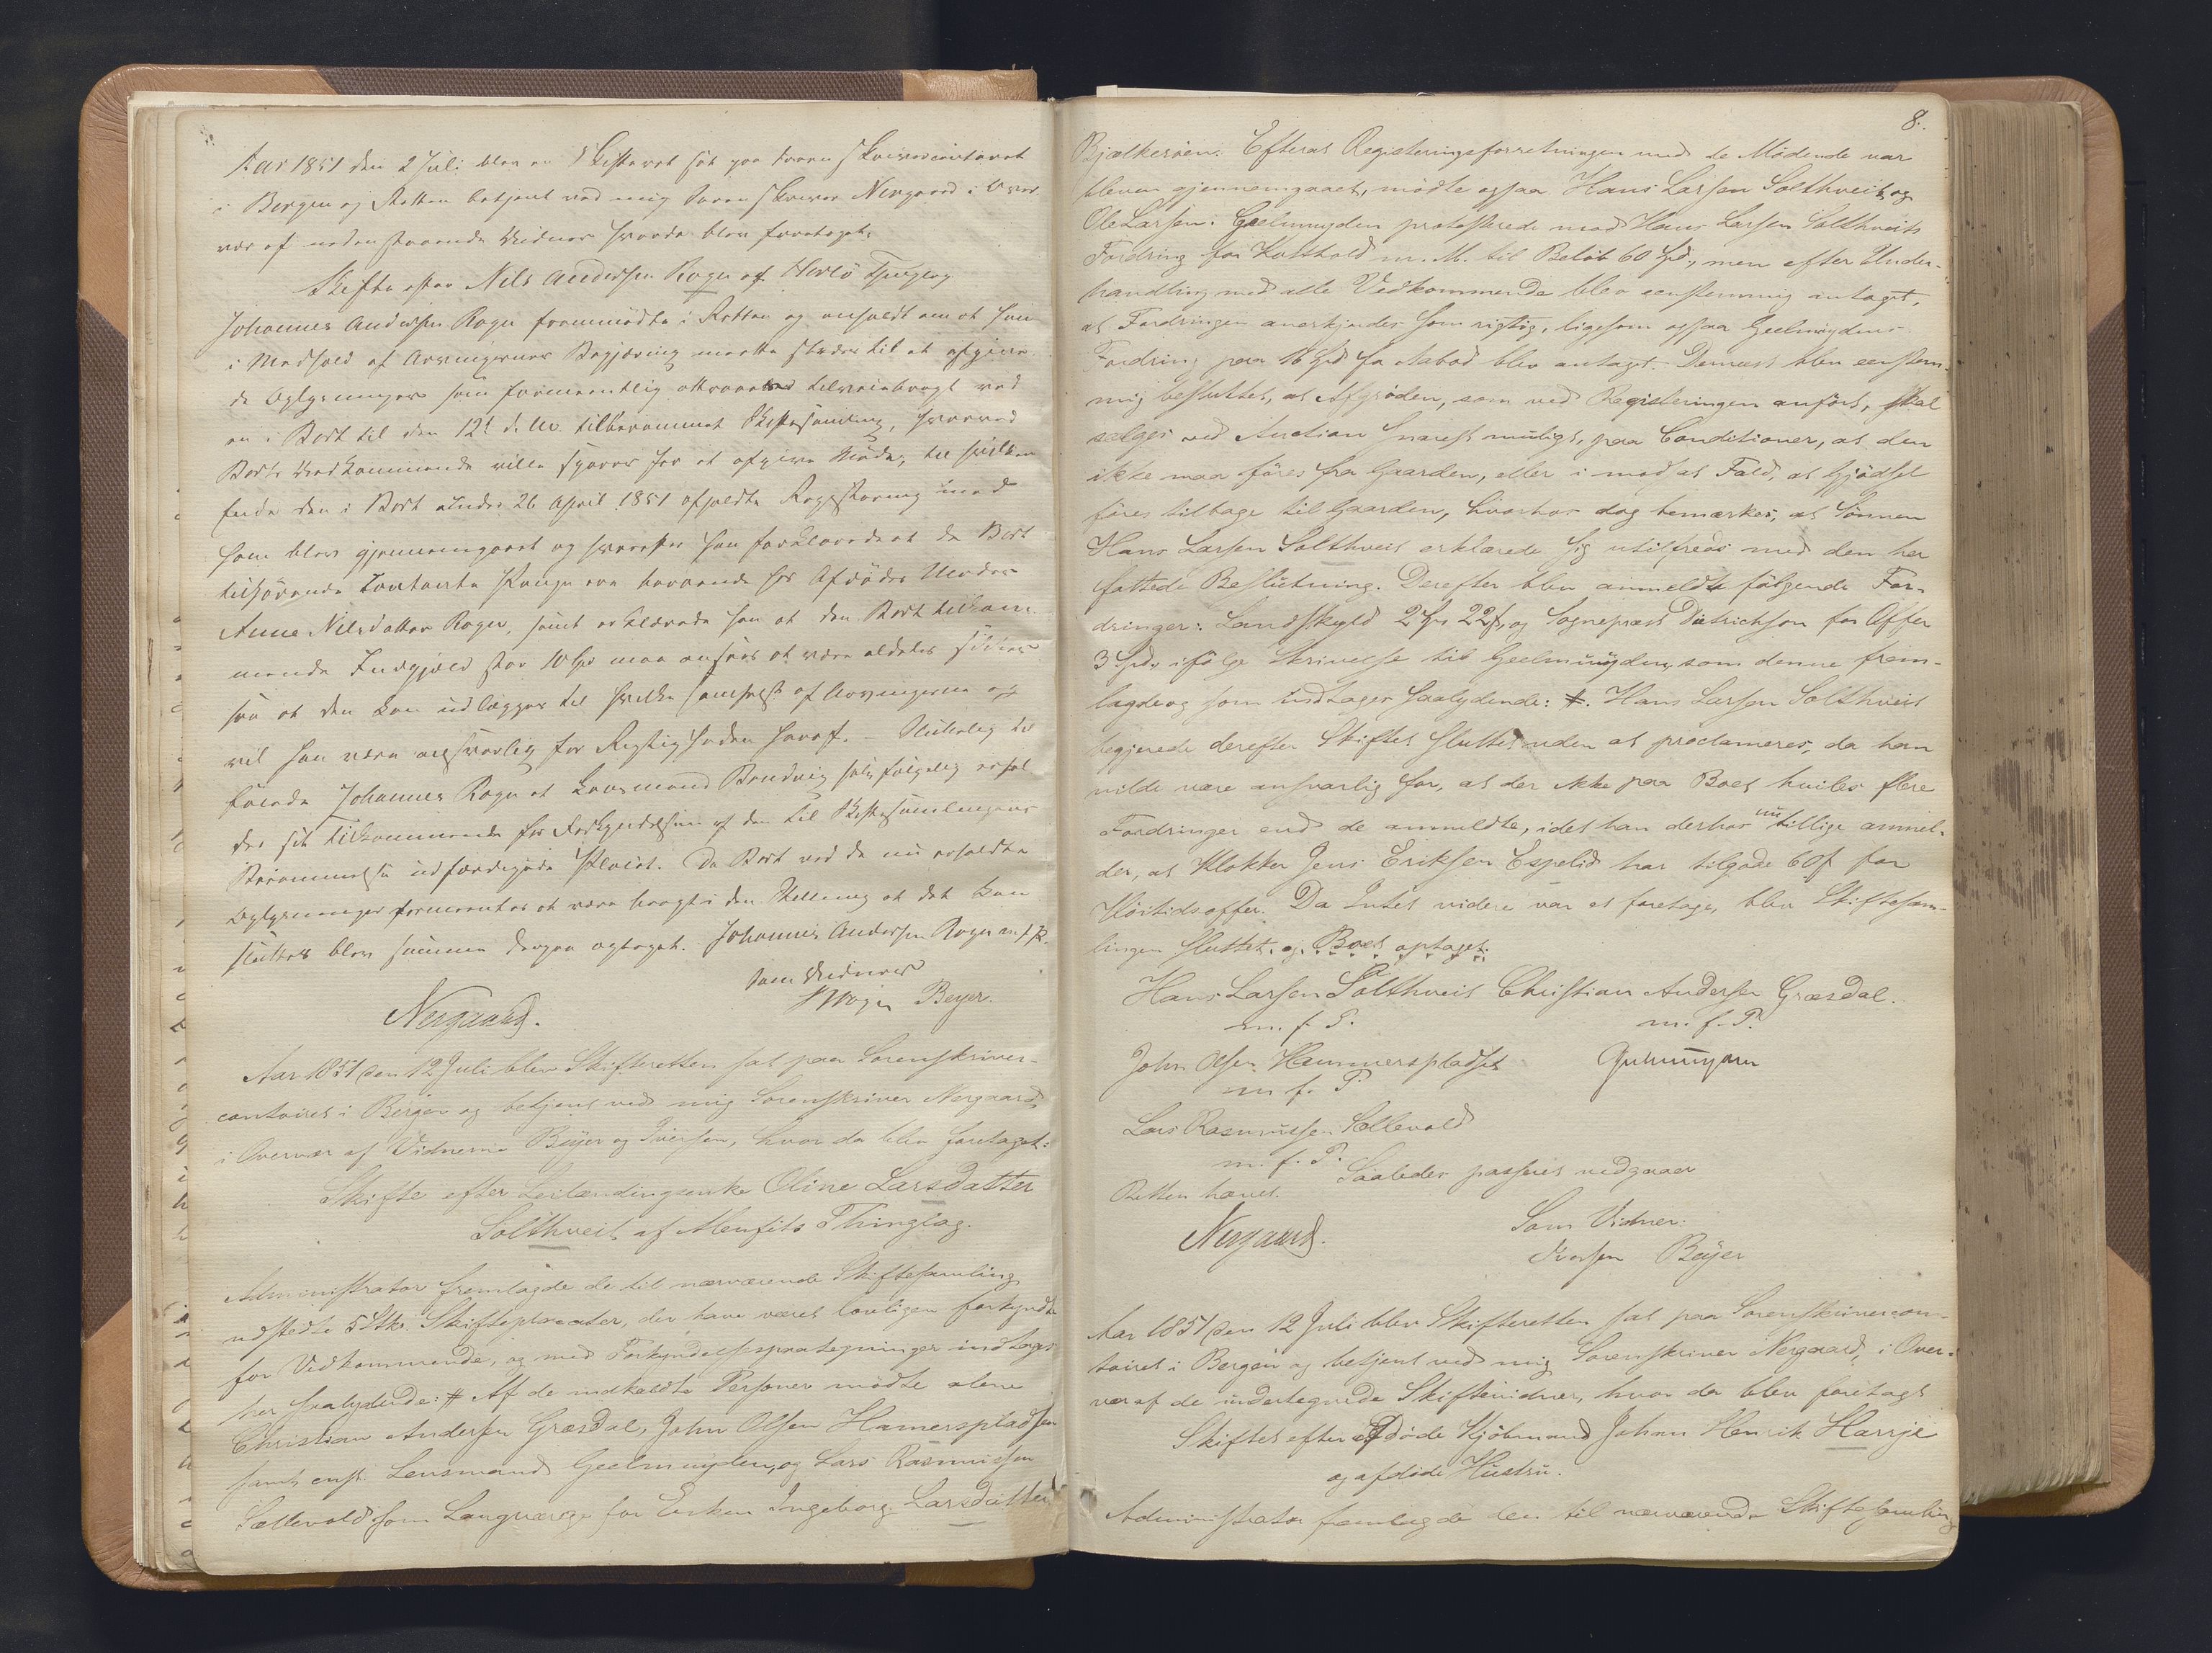 Aar 1851 den 2 Juli blev en Skifteret sat paa Sorenskrivercontoiret
i Bergen og Retten betjent ved mig Sorenskriver Nergaard i Over-
vær af nedenstaaende Vidner hvorda blev foretaget:
Skifte efter Nils Andersen Roger af Herlö Thinglag
Johannes Andersen Roger fremmødte i Retten og anholdt om at han
i Medhold af Arvingernes Begjæring maatte stedes til at afgive
de Oplysninger som formeentlig attraaedes tilveiebragt ved
en i Boet til den 12te d. M. tilberammet Skiftesamling, hvorved
Boets Vedkommende ville spares for at afgive Møde, til hvilken
Ende den i Boet under 26 April 1851 afholdte Registrering med
ham blev gjennemgaaet og hvorefter han forklarede at de Boet
tilhørende Contante Penge ere beroende hos Afdødes Moder
Anne Nilsdatter Roger, samt erklærede han at den Boet tilkom-
mende Indgjæld stor 10 Spd maa ansees at være aldeles sikker
saa at den kan udlægges til hvilken somhelst af Arvingerne og
vil han være ansvarlig for Rigtigheden heraf. – Sluttelig til-
føiede Johannes Roger at Lensmand Bendvig selvfølgelig erhol-
der sit Tilkommende for Forkyndelsen af den til Skiftesamlingens
Berammelse udfærdigede Placat. Da Boet ved de nu erholdte
Oplysninger formeentes at være bragt i den Stilling at det kan
sluttes blev samme dertil optaget. Johannes Andersen Roger m. f. P.
Som Vidner
Nergaard. Beyer.
Aar 1851 den 12 Juli blev Skifteretten sat paa Sorenskriver-
contoiret i Bergen og betjent ved mig Sorenskriver Nergaard,
i Overvær af Vidnerne Beyer og Iversen, hvor da blev foretaget:
Skifte efter Leilændingsenke Oline Larsdatter
Solthveit af Alenfits Thinglag.
Administrator fremlagde de til nærværende Skiftesamling
udstedte 5 Stkr. Skifteplacater, der have været lovligen forkyndte
for Vedkommende, og med Forkyndelsespaategninger indtages
her saalydende: # Af de indkaldte Personer mødte alene
Christian Andersen Græsdal, John Olsen Hamerspladsen
samt const. Lensmand Geelmuyden, og Lars Rasmussen
Sællevold som Laugværge for Enken Ingeborg Larsdatter
8.
Bjælkerøen. Efterat Registeringsforretningen med de Mødende var
bleven gjennemgaaet, mødte ogsaa Hans Larsen Solthveit og
Ole Larsen. Geelmuyden protesterede mod Hans Larsen Solthveits
Fordring for Kosthold m. M. til Beløb 60 Spd., men efter Under-
handling med alle Vedkommende blev eenstemmig antaget,
at Fordringen anerkjendes som rigtig, ligesom ogsaa Geelmuydens
Fordring paa 16 Spd for Aabod blev antaget. Dernæst blev eenstem-
mig besluttet, at Afgrøden, som ved Registeringen anført, skal
sælges ved Auction snarest muligt, paa Conditioner, at den
ikke maa føres fra Gaarden, eller i modsat Fald, at Gjødsel
føres tilbage til Gaarden, hvorhos dog bemærkes, at Sønnen
Hans Larsen Solthveit erklærede sig utilfreds med den her
fattede Beslutning. Derefter blev anmeldt følgende For-
dringer: Landskyld 2 Spd 22 ß, og Sognepræst Dietrichson for Offer
3 Spd., ifølge Skrivelse til Geelmuyden, som denne frem-
lagde og som indtages saalydende: #. Hans Larsen Solthveit
begjerede derefter Skiftet sluttet uden at proclameres, da han
vilde være ansvarlig for, at der ikke paa Boet hviler flere
Fordringer end de anmeldte, idet han derhos nu tillige anmel-
der, at Klokker Jens Eriksen Espelid har tilgode 60 ß for
Høitidsoffer. Da Intet videre var at foretage, blev Skiftesam-
lingen sluttet, og Boet optaget.
Hans Larsen Solthveit Christian Andersen Græsdal.
m. f. P. m. f. P.
John Olsen Hammerspladset Geelmuyden
m. f. P.
Lars Rasmussen Sællevold
m. f. P. Saaledes passeret vedgaaer
Retten hævet.
Nergaard. Som Vidner:
Iversen Beyer
Aar 1851 den 12 Juli blev Skifteretten sat paa Sorenskrivercon-
toiret i Bergen og betjent ved mig Sorenskriver Nergaard, i Over-
vær af de undertegnede Skiftevidner, hvor da blev foretaget
Skiftet efter afdøde Kjøbmand Johan Henrik Harrje
og afdøde Hustru.
Administrator fremlagde den til nærværende Skiftesamling